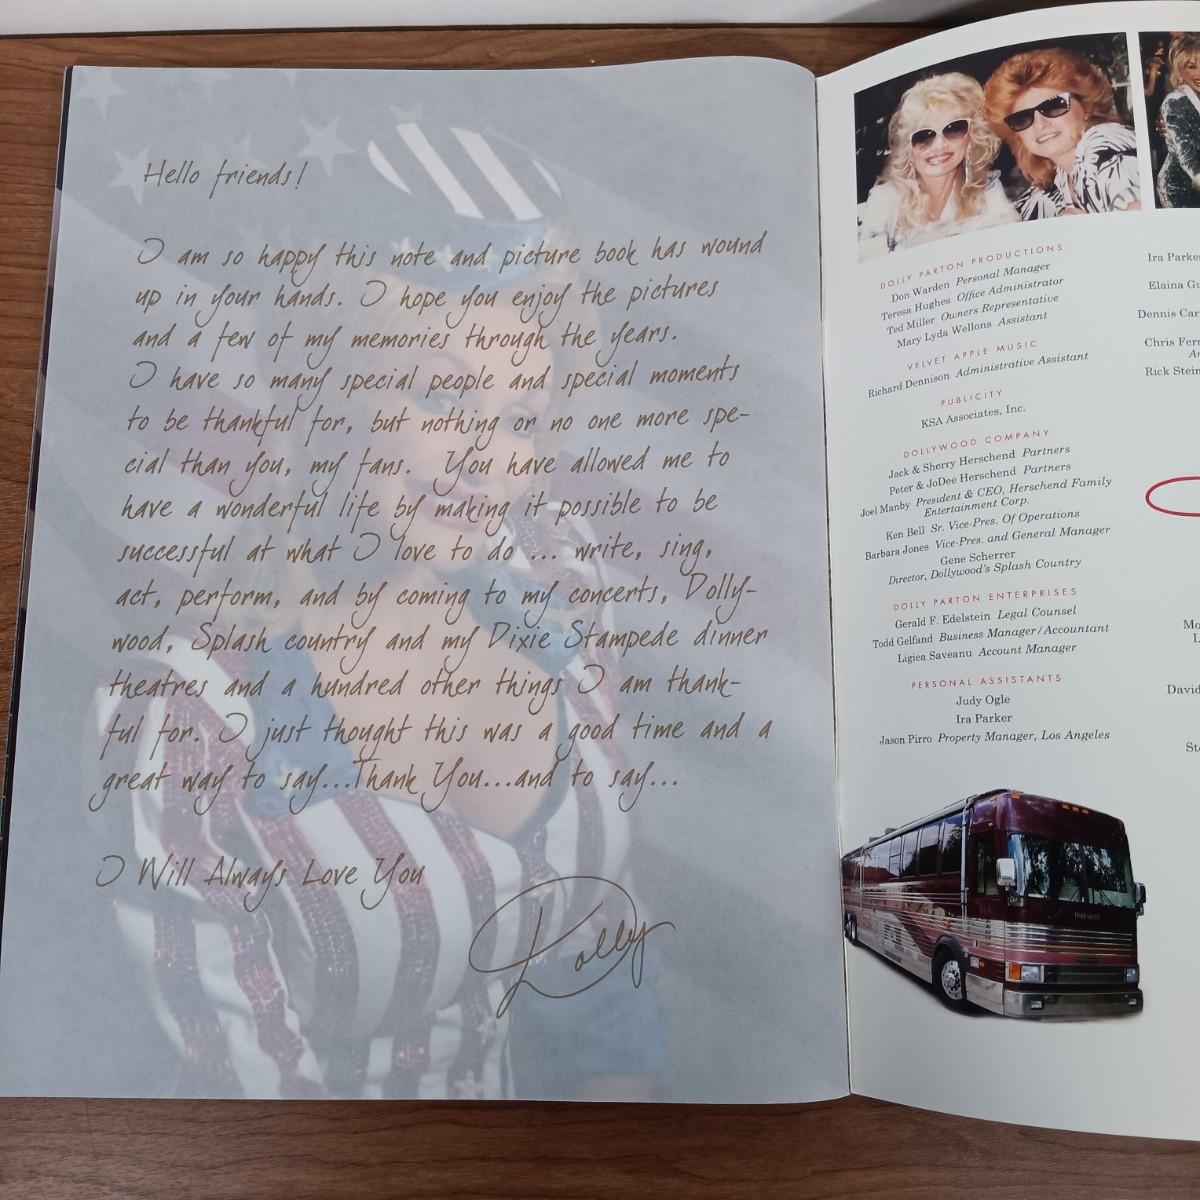 Hello friends!
I am so happy this note and picture book has wound
up in your hands. I hope you enjoy the pictures
and a few of my memories through the years.
I have so many special people and special moments
to be thankful for, but nothing or no one more spe-
cial than you, my fans. You have allowed me to
have a wonderful life by making it possible to be
successful at what I love to do ... write, sing,
act, perform, and by coming to my concerts, Dolly-
wood, Splash country and my Dixie Stampede dinner
theatres and a hundred other things I am thank-
ful for. I just thought this was a good time and a
great way to say...Thank You...and to say...
I Will Always Love You
Dolly
DOLLY PARTON PRODUCTIONS
Don Warden Personal Manager
Teresa Hughes Office Administrator
Ted Miller Owners Representative
Mary Lyda Wellons Assistant
VELVET APPLE MUSIC
Richard Dennison Administrative Assistant
PUBLICITY
KSA Associates, Inc.
DOLLYWOOD COMPANY
Jack & Sherry Herschend Partners
Peter & JoDee Herschend Partners
Joel Manby President & CEO, Herschend Family
Entertainment Corp.
Ken Bell Sr. Vice-Pres. Of Operations
Barbara Jones Vice-Pres. and General Manager
Gene Scherrer
Director, Dollywood's Splash Country
DOLLY PARTON ENTERPRISES
Gerald F. Edelstein Legal Counsel
Todd Gelfand Business Manager/Accountant
Ligiea Saveanu Account Manager
PERSONAL ASSISTANTS
Judy Ogle
Ira Parker
Jason Pirro Property Manager, Los Angeles
Ira Parke
Elaina Gu
Dennis Car
Chris Ferr
A
Rick Stein
Mo
L
David
Ste